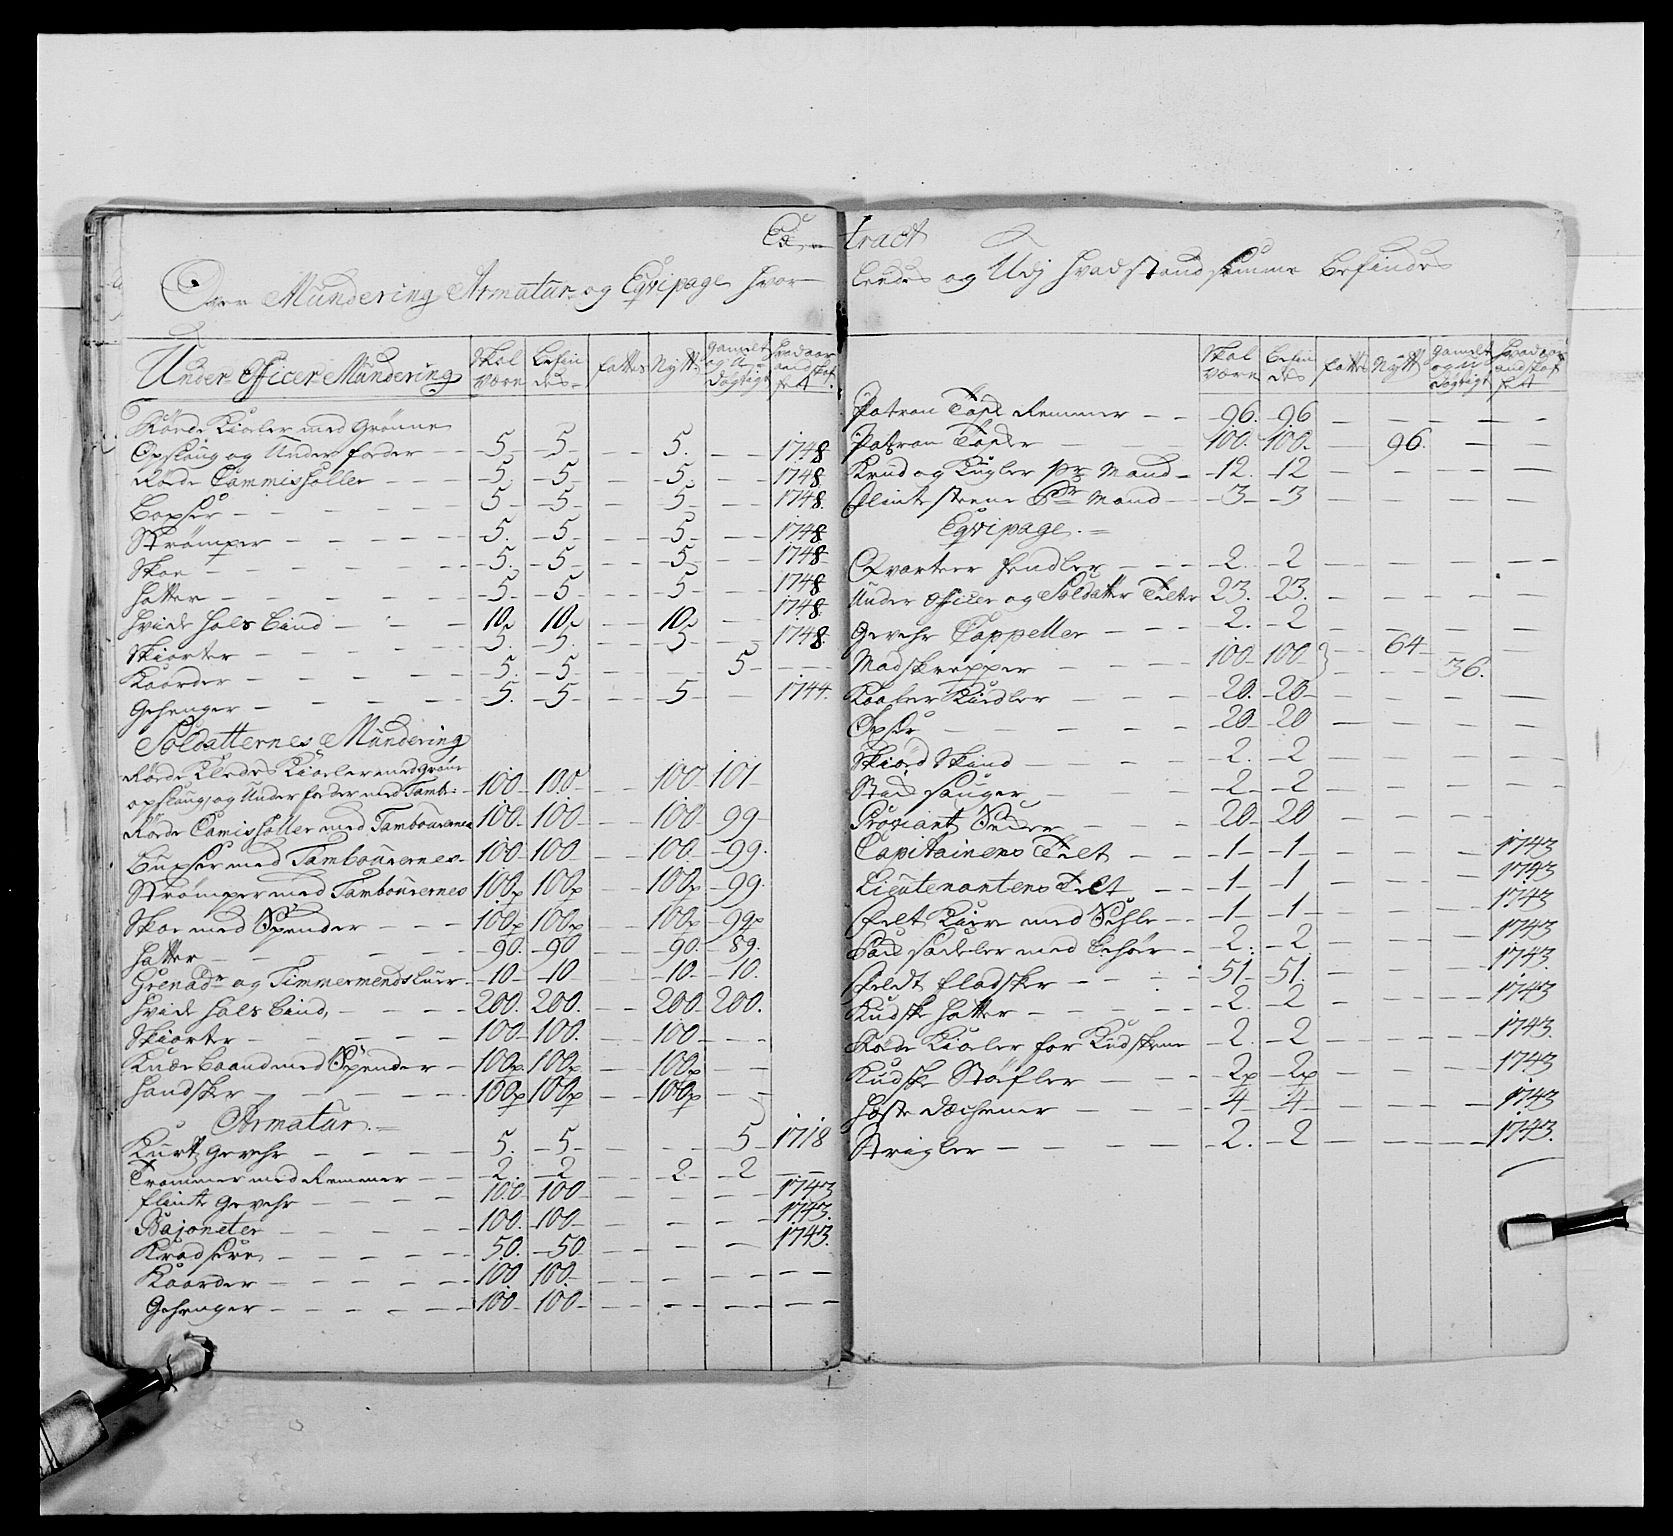 Ex tract
Over Mundering Armatur og Eqvipage hvor ledes og Udj hvad stand samme befindes
Under Officer Mundering Skal være Befindes fattes Nytt gamelt og U dögtigt hvad aar andskaffet
Röde Kioler med Grönne
Opslaug og Under foeder 5 5 5. 1748
Röde Cammisholler 5 5 5 1748
Boxser 5 5 5 1748.
Strömper 5. 5 5 1748
Skoe 5. 5 5 1748
Hatter 5 5 5 1748
Hvide Hals bind 10 10 10 1748.
Skiorter 5. 5. 5 1748.
Kaarder 5. 5 5
Gehenger 5. 5 5 1744.
Soldatternes Mundering
Röde Kledes Kioler med Grönne
opslaug, og Under foeder med Tamb: 100 100 100 101
Röde Camisholler med Tambourerne 100 100 100 99
Buxser med Tambourernes 100 100 100. 99.
Strömper med Tambourernes 100p 100p 100p 99.
Skoe med Spender 100p 100p 100p 99p
Hatter 90. 90 90. 89.
Grenadr og Timmermends luer 10 10 10. 10.
Hvide Hals bind, 200. 200. 200. 200.
Skiorter 100 100. 100
Knæe baand med Spender 100p. 100p 100p
Handsker 100p 100p 100p
Armatur.
Kurtt Gevehr 5. 5 5 1718
Trommer med Remmer 2. 2 2 2
flinte Gevehr 100 100 1743
Bajoneter 100. 100 1743.
Kradsere 50. 50 1743.
Kaarder 100 100.
Gehenger 100 100
Skal være Befindes fattes Nytt gamelt og U dögtigt hvad aar andskaffet
Patron Taske Remmer 96. 96
Patron Tasker 100. 100. 96.
Krud og Kugler pr Mand 12. 12
Flinte steene Pr Mand 3 3
Eqvipage.
Qvarteer fendler 2. 2
Under Officer og Soldatter Telte 23. 23.
Gevehr Cappeller 2. 2
Madskrepper 100 100 64 36.
Kaaber Kiedler 20. 20
Øxser 20 20
Skiörd Skind 2. 2
Staid sauger 2 2
Proviant Seder 20 20
Capitainens Telt 1 1 1743
Lieutenantens Telt 1 1 1743
Felt Kiere med Sehle 1 1 1743
Said sadeler med behör 2. 2 1743
Feldt flasker 51 51 1743.
Kudske hatter 2. 2 1743
Röde Kioler for Kudskene 2. 2 1743.
Kudske Støfler 2p 2p 1743
Heste Dechener 4 4 1743
Strigler 2. 2 1743.